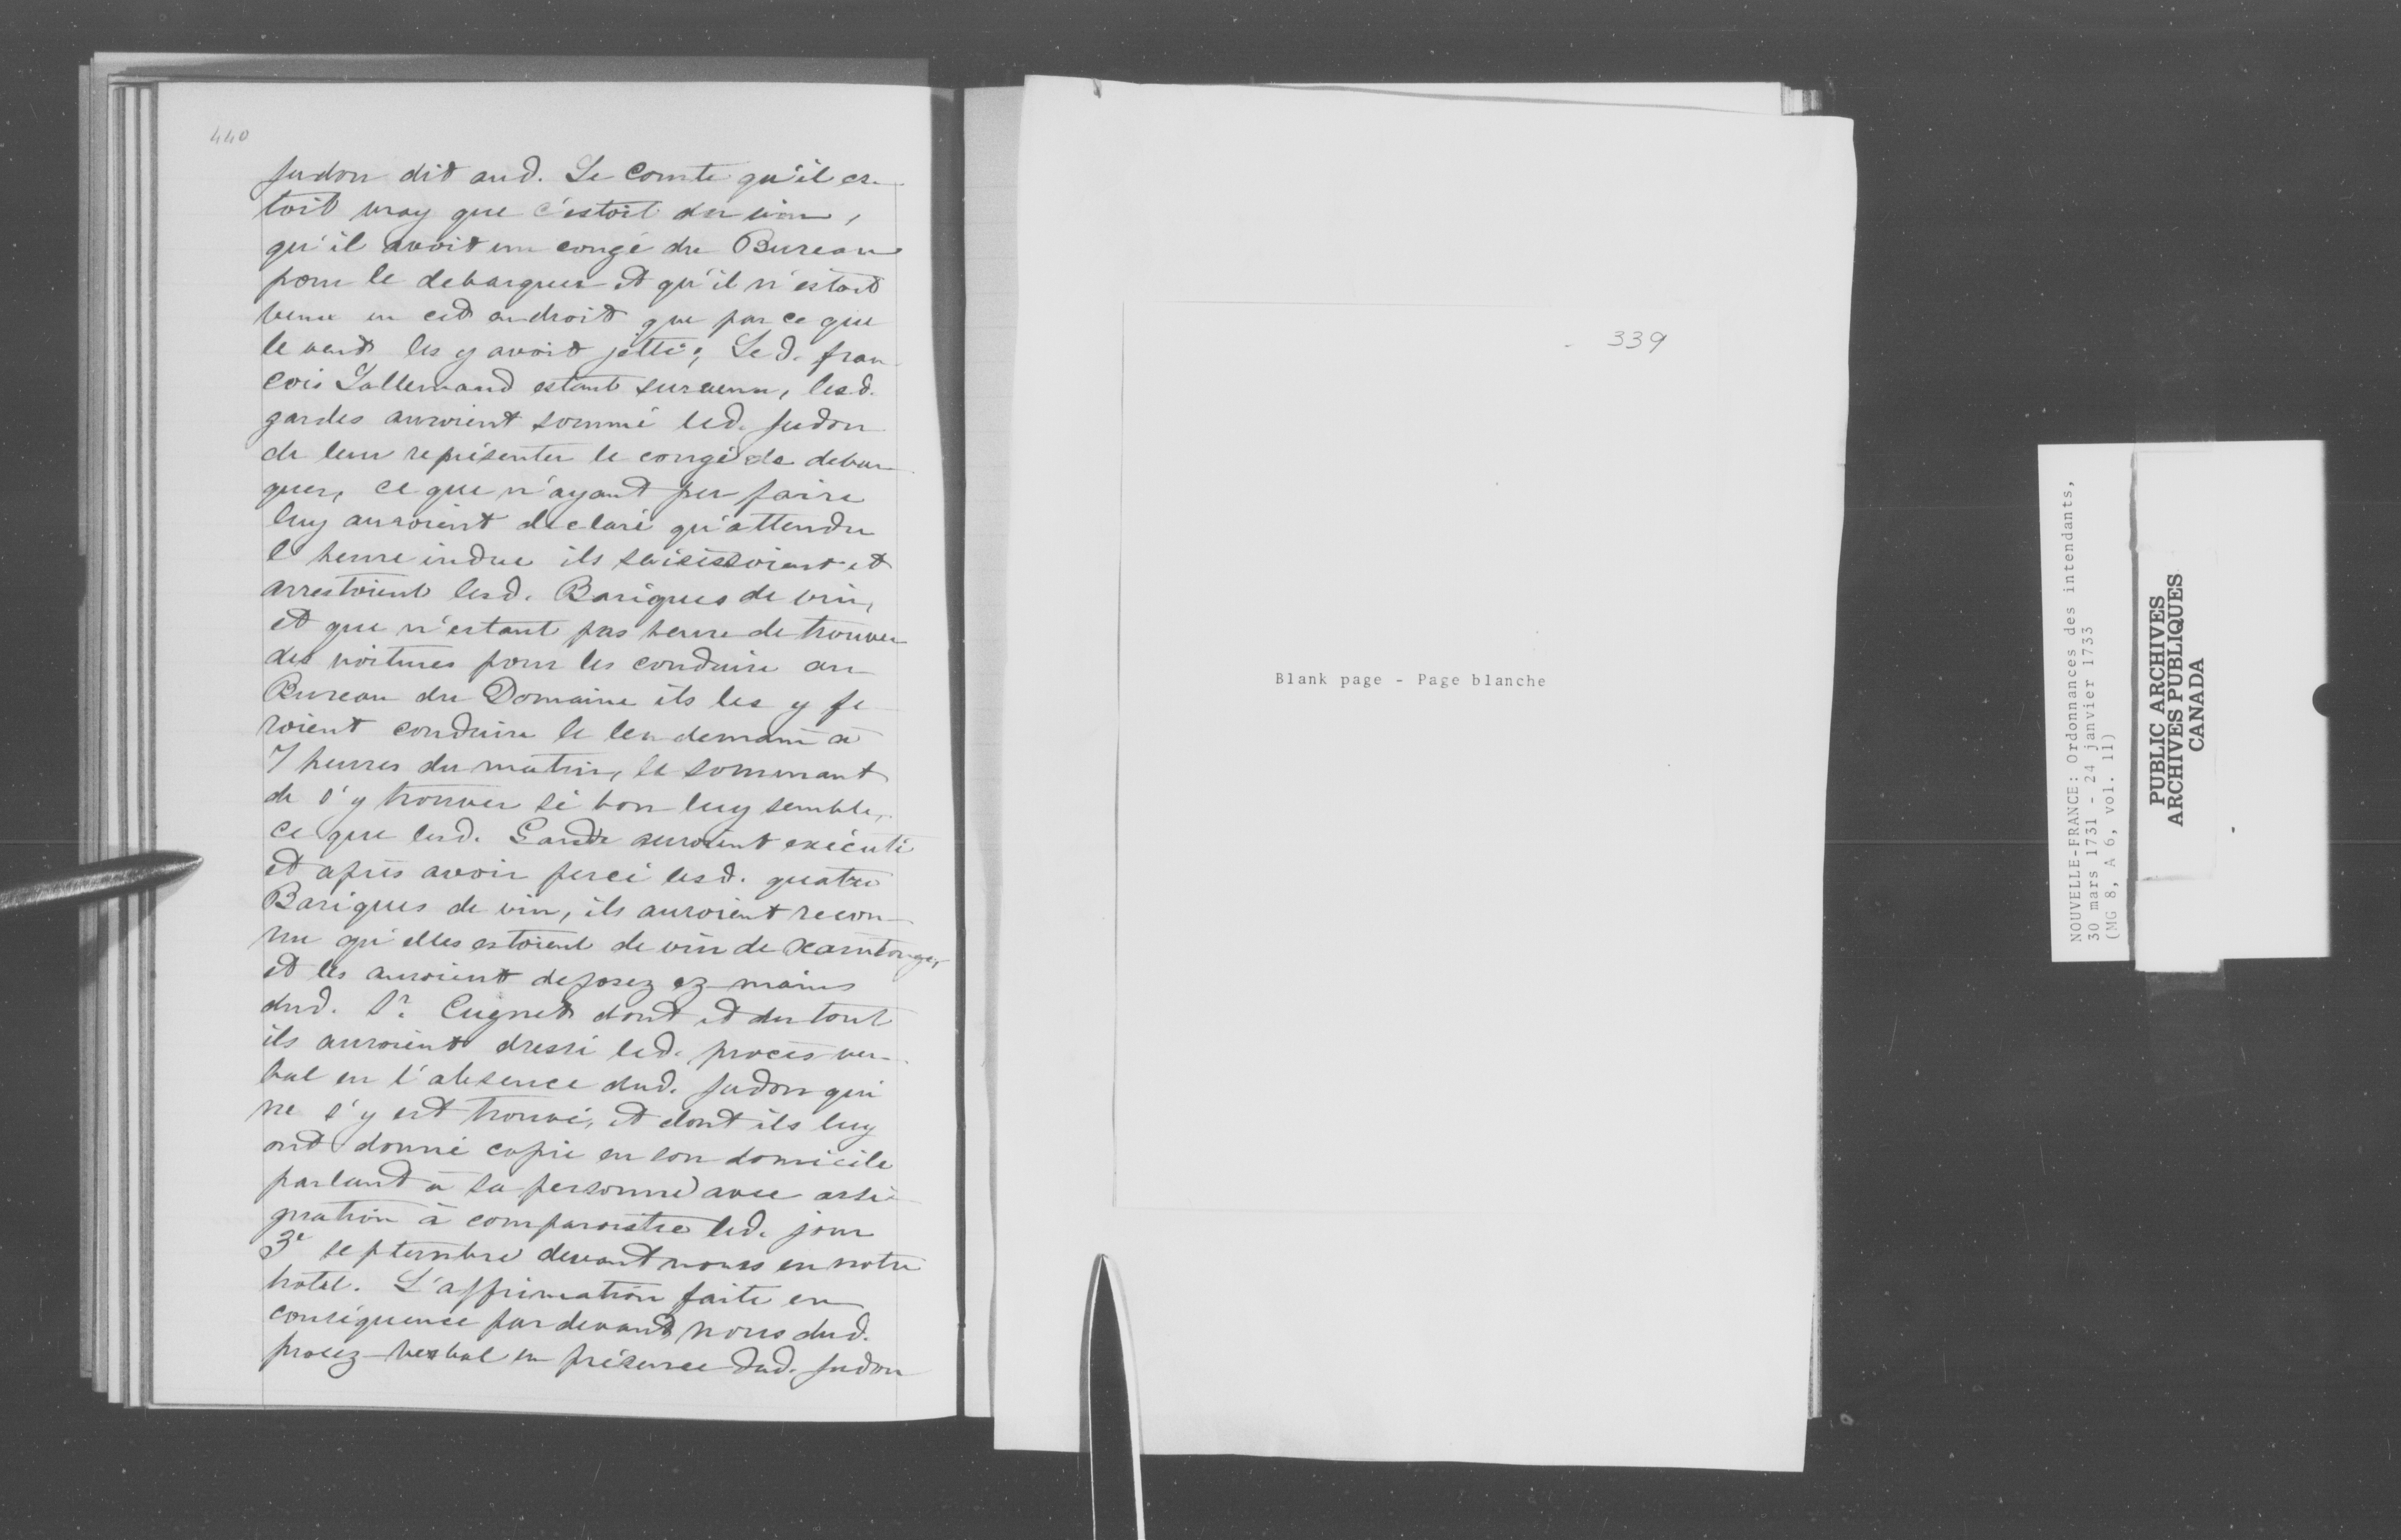 440
Judon dit aud. Le Comte qu'il es-
toit vray que c'estoit du vin,
qu'il avoit un congé du Bureau
pour le debarquer et qu'il n'estoit
venu en cet endroit que par ce que
le vent les y avoit jetté; Le d. fran-
cois Lallemand estant survenu, lesd.
gardes auroient sommé led. Judon
de leur représenter le congé de debar-
quer, ce que n'ayant pu faire
luy auroient declaré qu'attendu
l'heure indue ils saisissoient et
arrestoient lesd. Bariques de vin,
et que n'estant pas heure de trouver
des voitures pour les conduire au
Bureau du Domaine ils les y fe-
roient conduire le lendemain à
7 heures du matin, le sommant
de s'y trouver si bon luy semble,
ce que lesd. Gardes auroient exécuté
et après avoir percé lesd. quatre
Bariques de vin, ils auroient recon-
nu qu'elles estoient de vin de Xaintonge,
et les auroient deposez ez mains
dud. Sr. Cugnet dont et du tout
ils auroient dressé led. procès ver-
bal en l'absence dud. Judon qui
ne s'y est trouvé, et dont ils luy
ont donné copie en son domicile
parlant à sa personne avec assi-
gnation à comparoistre led. jour
3e septembre devant nous en notre
hotel. L'affirmation faite en
conséquence par devant nous dud.
procez-verbal en présence dud. Judon
339
Blank page - Page blanche
NOUVELLE-FRANCE: Ordonnances des intendants,
30 mars 1731 - 24 janvier 1733
(MG 8, A 6, vol. 11)
PUBLIC ARCHIVES
ARCHIVES PUBLIQUES
CANADA